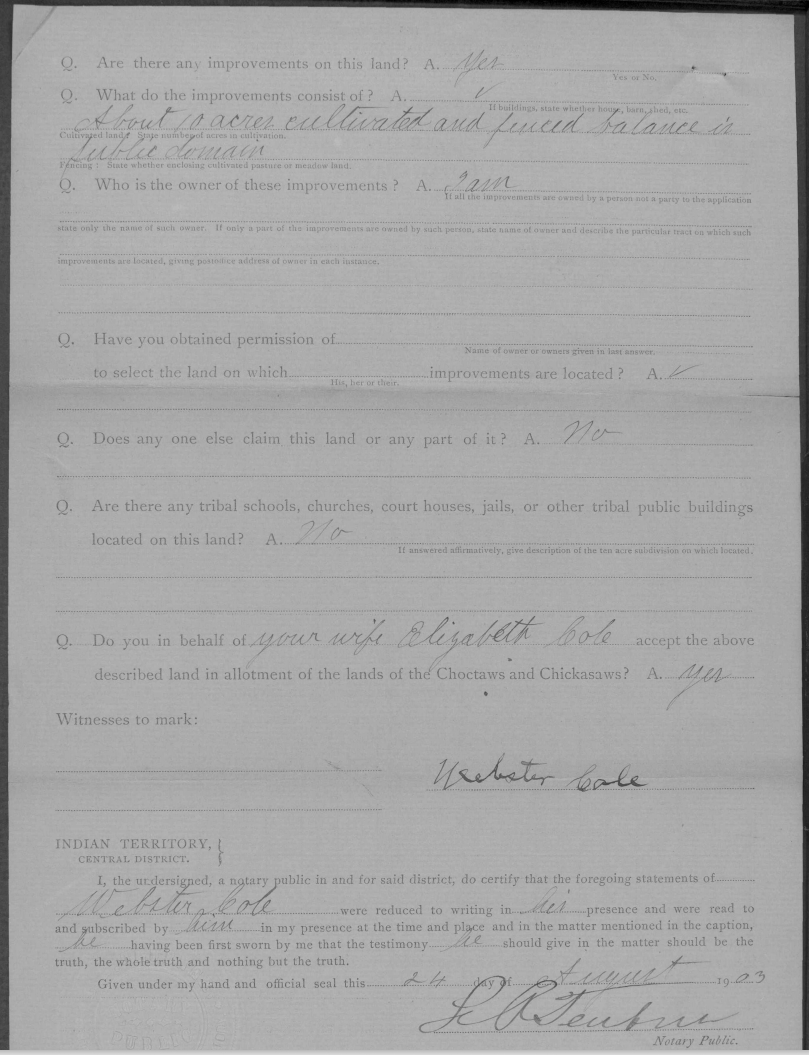 Q. Are there any improvements on this land? A. Yes
Yes or No.
Q. What do the improvements consist of? A. ✓
If buildings, state whether house, barn, shed, etc.
About 10 acres cultivated and fenced balance is
Cultivated land? State number of acres in cultivation.
public domain
Fencing? State whether enclosing cultivated pasture or meadow land.
Q. Who is the owner of these improvements? A. I am
If all the improvements are owned by a person not a party to the application
state only the name of such owner. If only a part of the improvements are owned by such person, state name of owner and describe the particular tract on which such
improvements are located, giving postoffice address of owner in each instance.
Q. Have you obtained permission of
Name of owner or owners given in last answer.
to select the land on which improvements are located? A. ✓
His, her or their.
Q. Does any one else claim this land or any part of it? A. No
Q. Are there any tribal schools, churches, court houses, jails, or other tribal public buildings
located on this land? A. No
If answered affirmatively, give description of the ten acre subdivision on which located,
Q. Do you in behalf of your wife Elizabeth Cole accept the above
described land in allotment of the lands of the Choctaws and Chickasaws? A. Yes
Witnesses to mark:
Webster Cole
INDIAN TERRITORY, }
CENTRAL DISTRICT.
I, the undersigned, a notary public in and for said district, do certify that the foregoing statements of
Webster Cole were reduced to writing in his presence and were read to
and subscribed by him in my presence at the time and place and in the matter mentioned in the caption,
he having been first sworn by me that the testimony he should give in the matter should be the
truth, the whole truth and nothing but the truth.
Given under my hand and official seal this 24 day of August 1903
Notary Public.